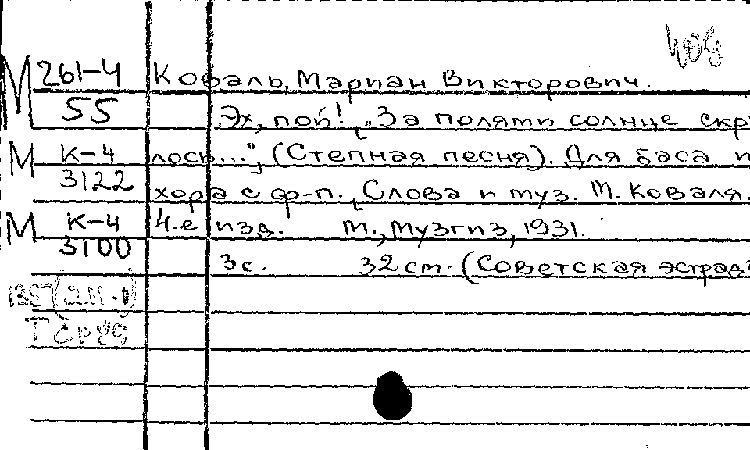 М 261-4 Коваль, Мариан Викторович.
55 Эх, пой! „За полями солнце скр
М К-4 лось...", (Степная песня). Для баса и
3122 хора с ф-п., Слова и муз. М. Коваля.
М К-4 4.е изд. М., Музгиз, 1931.
3100 3с. 32 см. (Советская эстрад